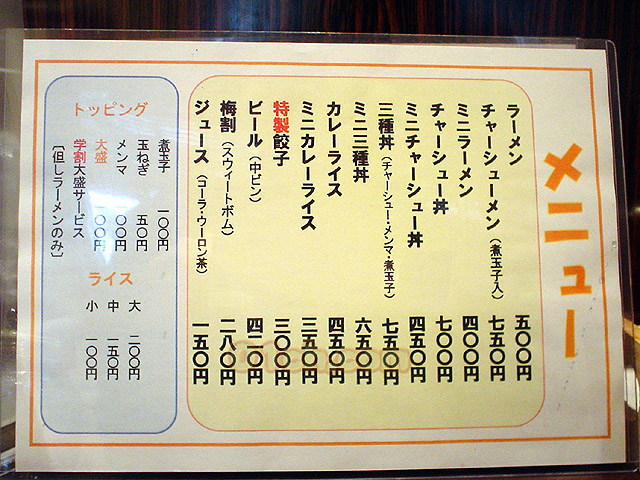 メニュー
ラーメン 五〇〇円
チャーシューメン（煮玉子入） 七五〇円
ミニラーメン 四〇〇円
チャーシュー丼 七〇〇円
ミニチャーシュー丼 四五〇円
三種丼（チャーシュー・メンマ・煮玉子） 七五〇円
ミニ三種丼 六五〇円
カレーライス 四五〇円
ミニカレーライス 三五〇円
特製餃子 三〇〇円
ビール（中ビン） 四二〇円
梅割（スウィートボム） 二八〇円
ジュース（コーラ・ウーロン茶） 一五〇円
トッピング
煮玉子 一〇〇円
玉ねぎ 五〇円
メンマ 一〇〇円
大盛 一〇〇円
学割大盛サービス
［但しラーメンのみ］
ライス
大 二〇〇円
中 一五〇円
小 一〇〇円